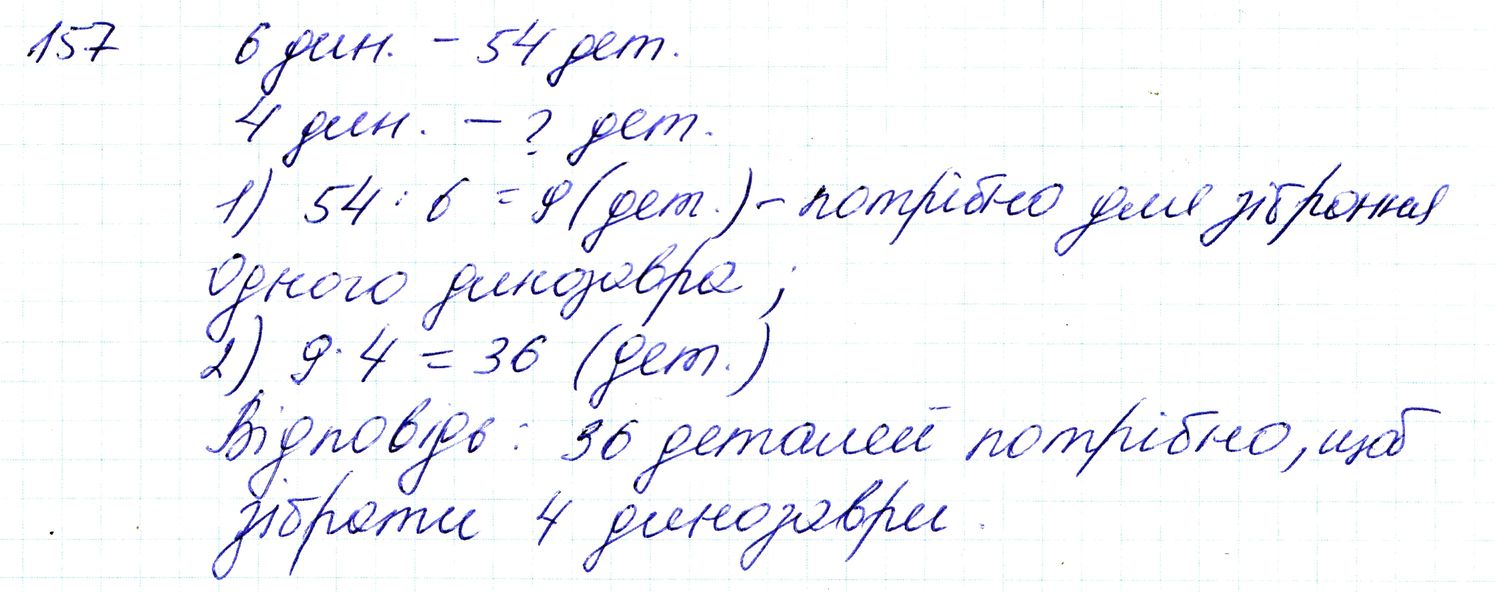 157 6 дин. – 54 дет.
4 дин. – ? дет.
1) 54 : 6 = 9 (дет.) – потрібно для зібрання
одного динозавра;
2) 9 · 4 = 36 (дет.)
Відповідь: 36 деталей потрібно, щоб
зібрати 4 динозаври.